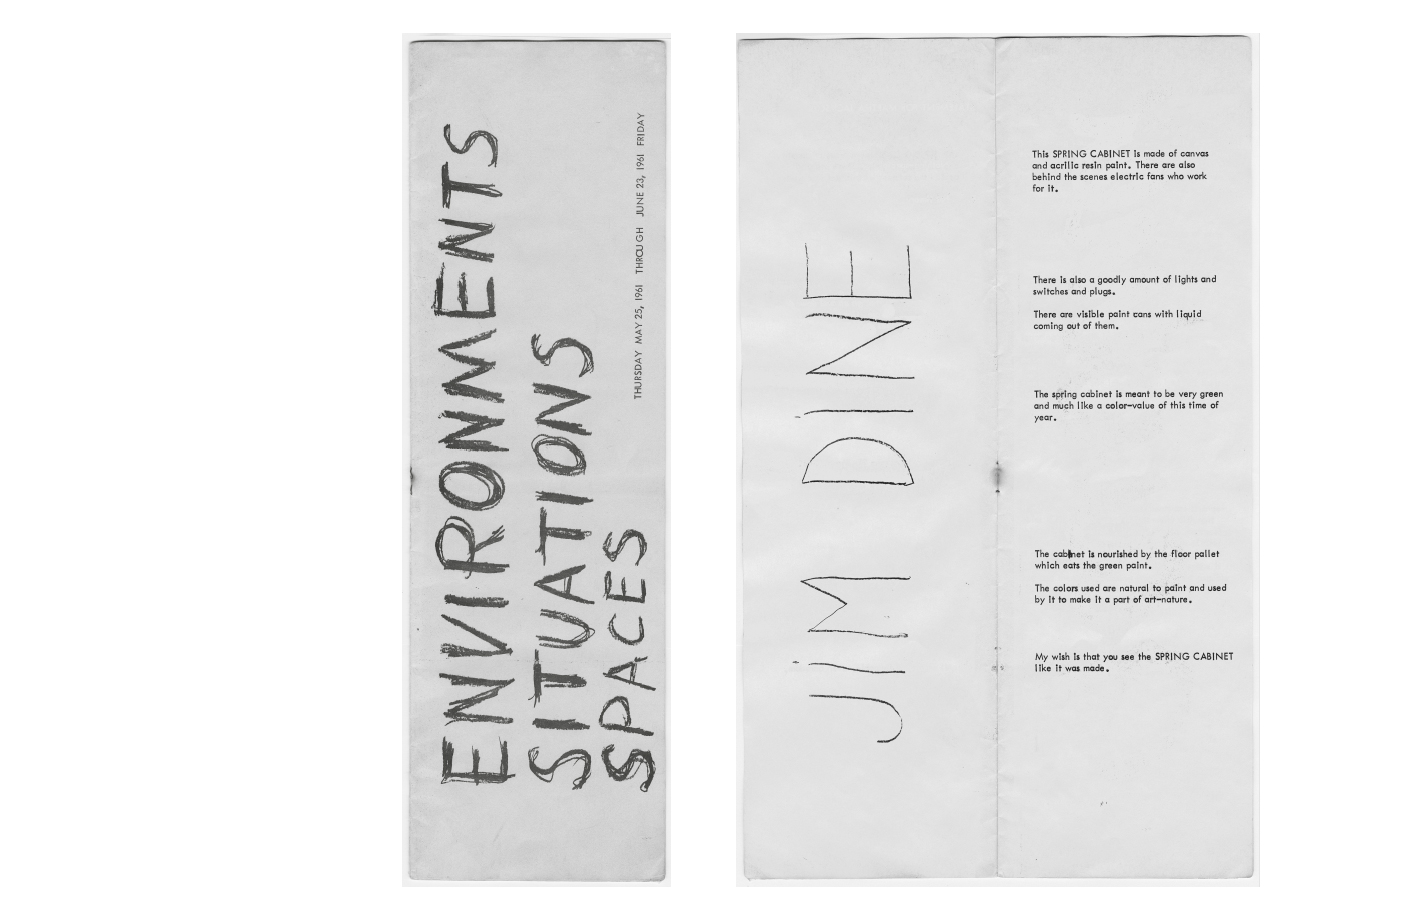 ENVIRONMENTS
SITUATIONS
SPACES
THURSDAY MAY 25, 1961 THROUGH JUNE 23, 1961 FRIDAY
JIM DINE
This SPRING CABINET is made of canvas
and acrilic resin paint. There are also
behind the scenes electric fans who work
for it.
There is also a goodly amount of lights and
switches and plugs.
There are visible paint cans with liquid
coming out of them.
The spring cabinet is meant to be very green
and much like a color-value of this time of
year.
The cabinet is nourished by the floor pallet
which eats the green paint.
The colors used are natural to paint and used
by it to make it a part of art-nature.
My wish is that you see the SPRING CABINET
like it was made.